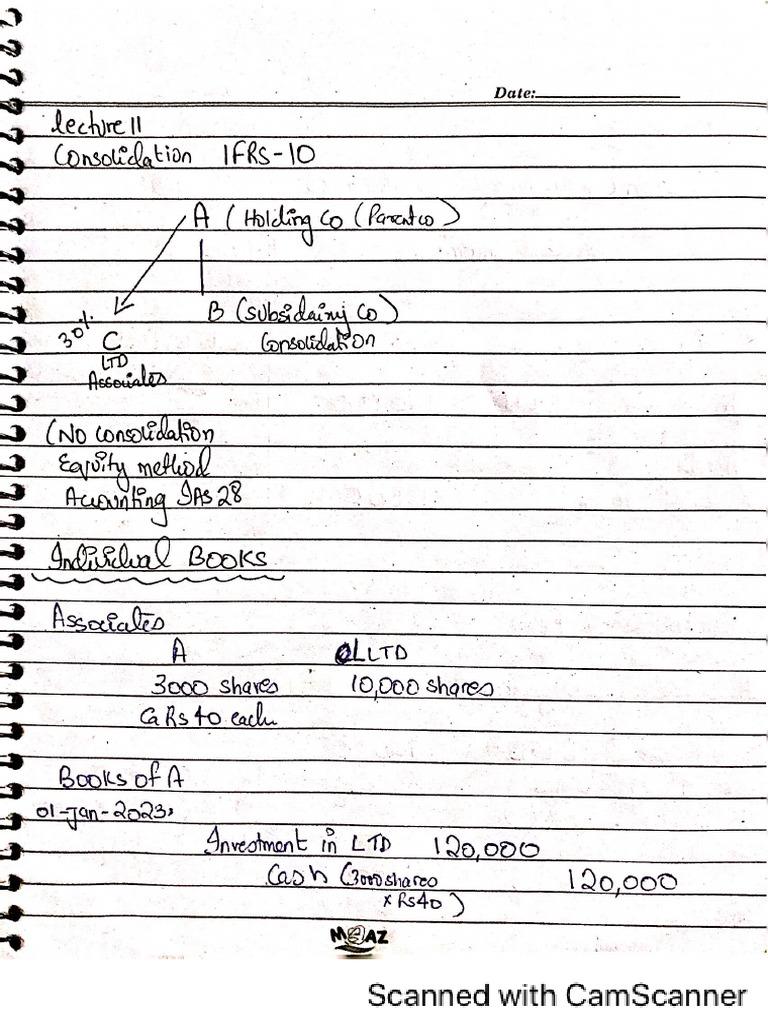 Date:
lecture 11
Consolidation IFRS-10
A (Holding Co (Parent co)
B (Subsidainy Co)
30% C Consolidation
LTD
Associates
(No consolidation
Equity method
Accounting IAS 28
Individual BOOKS
Associates
A LTD
3000 shares 10,000 shares
@ Rs 40 each
Books of A
01-Jan-2023,
Investment in LTD 120,000
Cash (3000 shares 120,000
x Rs 40 )
MOAZ
Scanned with CamScanner